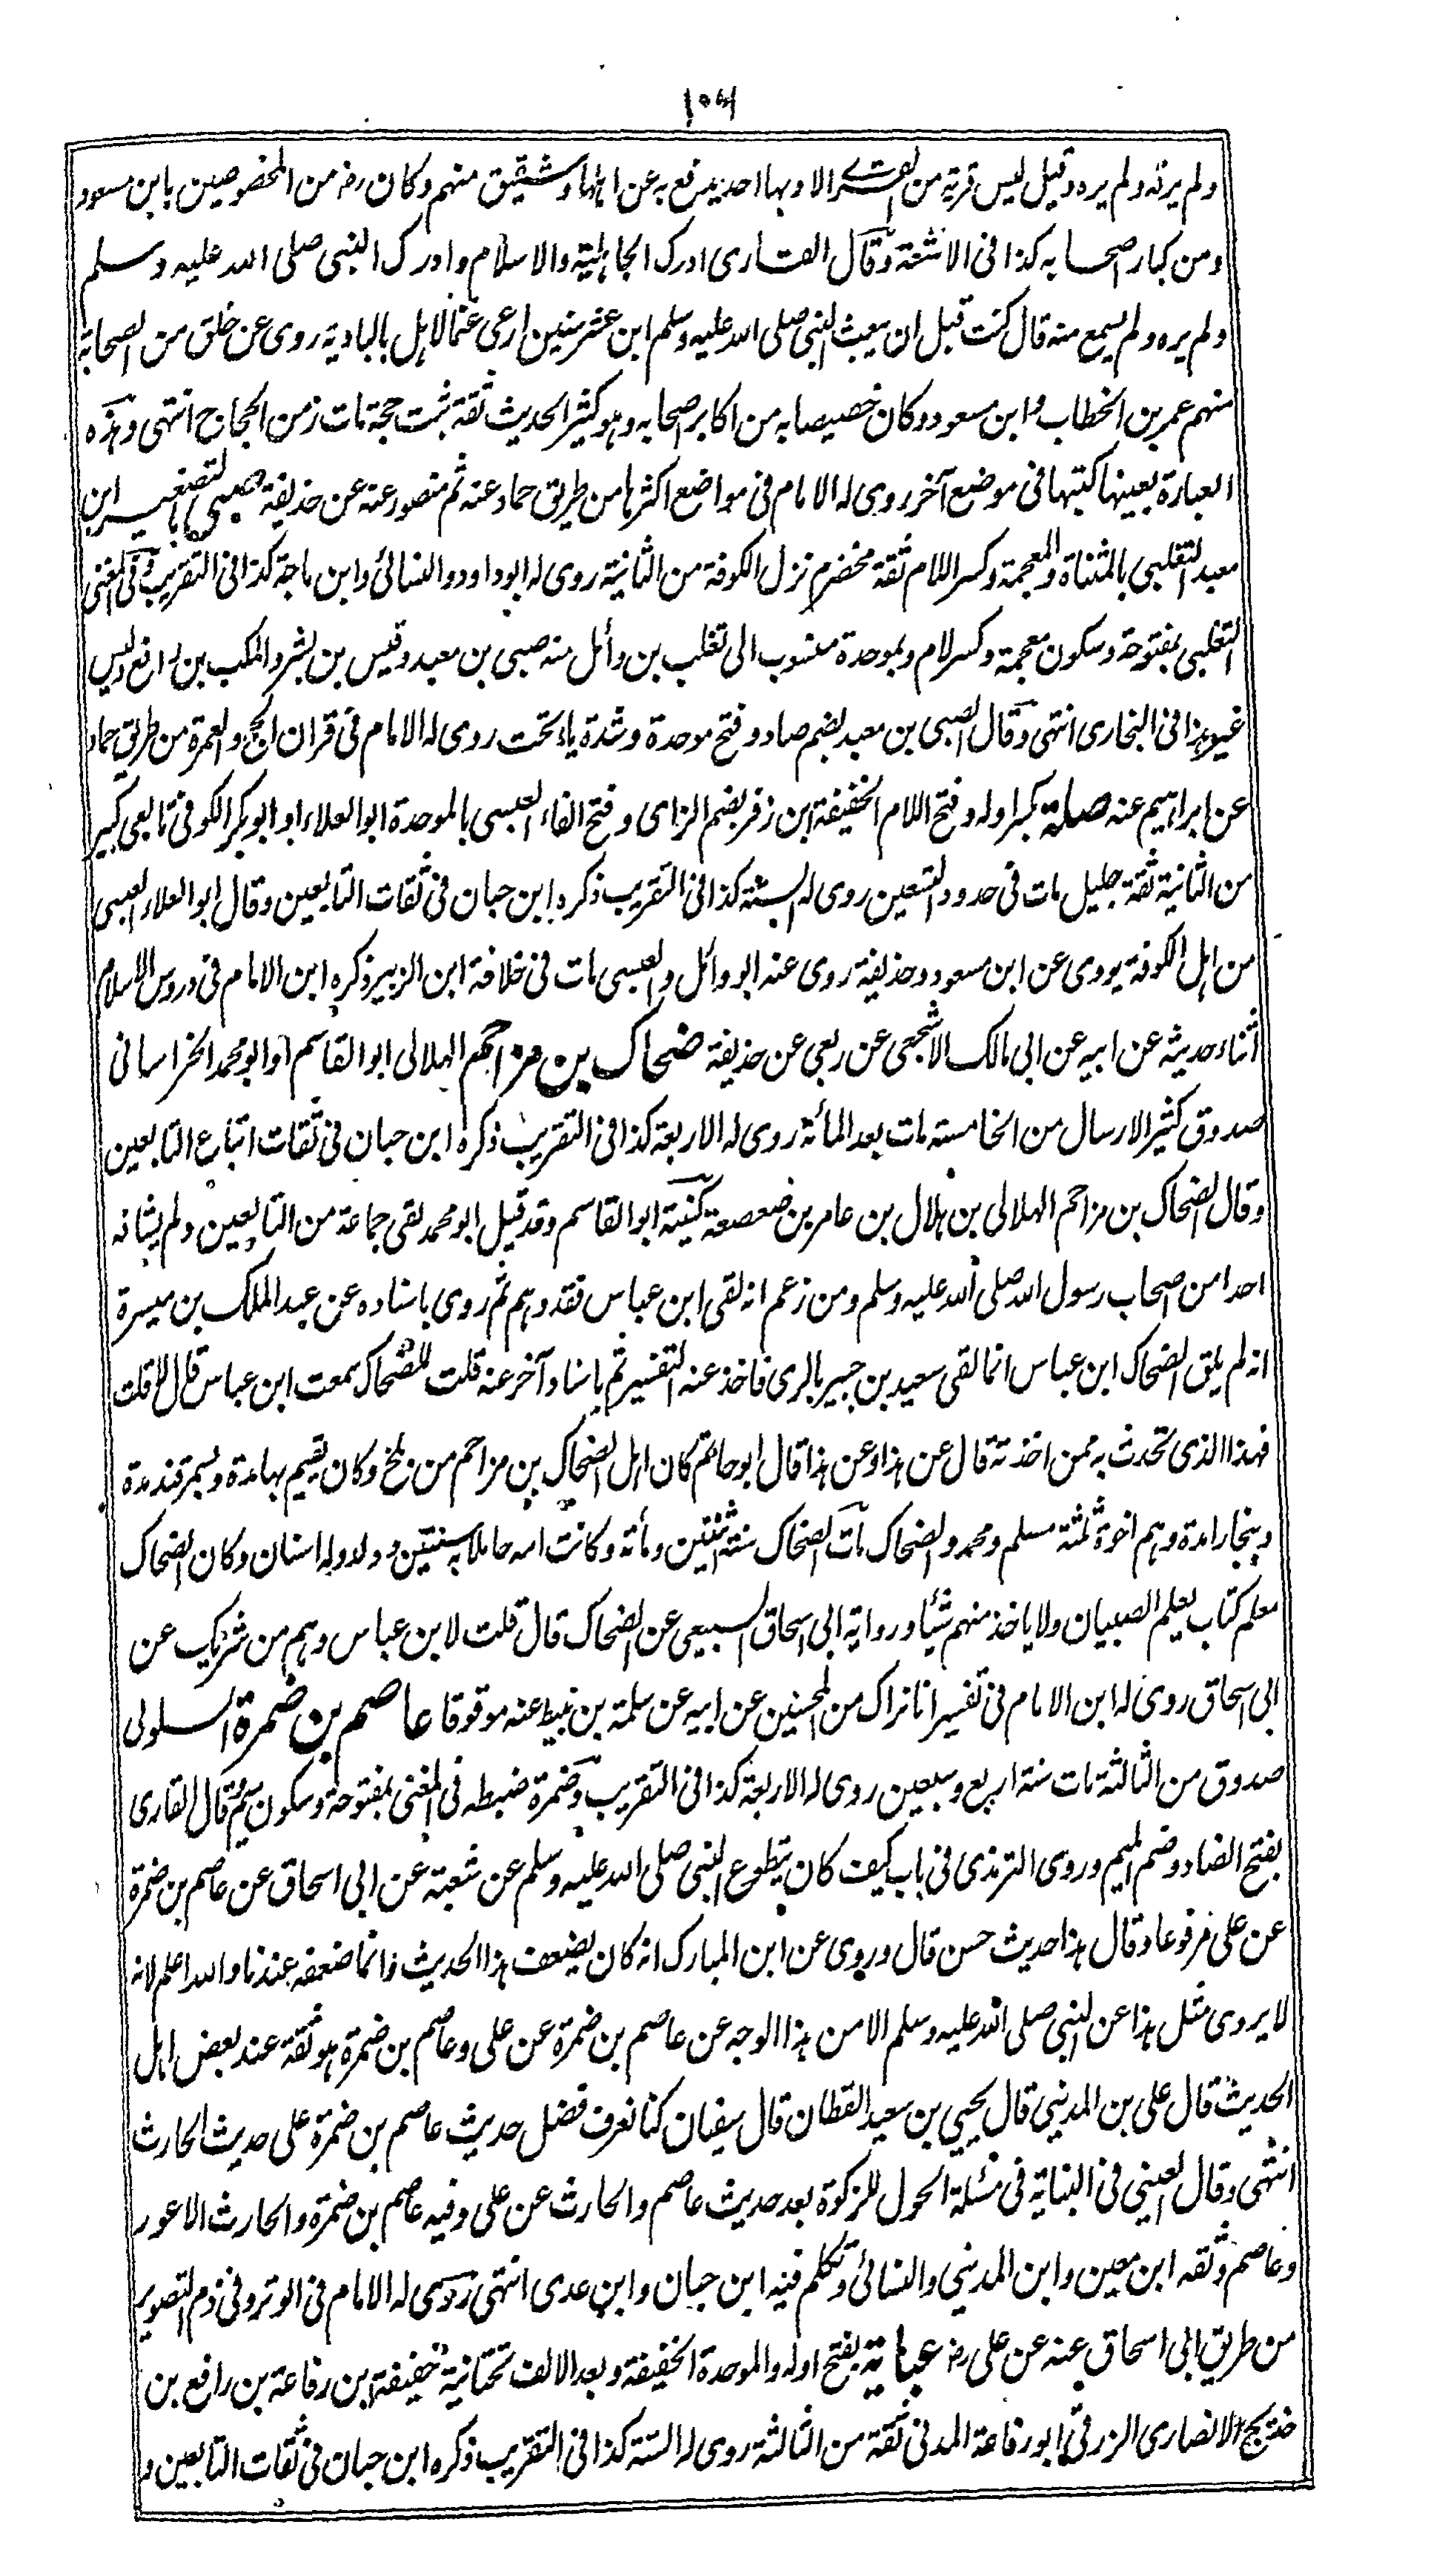 ١٠٦
ولم يرته ولم يره وقيل ليس قرية من القرى الا وبها احد يدفع به عن اهلها وشقيق منهم وكان رض من المخصوصين بابن مسعود
ومن كبار اصحابه كذا فى الاشعة وقال القارى ادرك الجاهلية والاسلام وادرك النبى صلى الله عليه وسلم
ولم يره ولم يسمع منه قال كنت قبل ان يبعث النبى صلى الله عليه وسلم ابن عشر سنين ارعى غنما لاهل بالبادية روى عن خلق من الصحابة
منهم عمر بن الخطاب وابن مسعود وكان خصيصا به من اكابر اصحابه وهو كثير الحديث ثقة ثبت حجة مات زمن الحجاج انتهى وهذه
العبارة بعينها كتبتها فى موضع آخر روى له الامام فى مواضع اكثرها من طريق حماد عنه ثم منصور عنه عن حذيفة صبى بالتصغير ابن
معبد التغلبى بالمثناة والمعجمة وكسر اللام ثقة مخضرم نزل الكوفة من الثانية روى له ابو داود والنسائى وابن ماجة كذا فى التقريب وفى المغنى
التغلبى بمفتوحة وسكون معجمة وكسر لام وبموحدة منسوب الى تغلب بن وائل منه صبى بن معبد وقيس بن بشر والمكب بن رافع وليس
غير هذا فى البخارى انتهى وقال الصبى بن معبد بضم صاد وفتح موحدة وشدة ياء تحت روى له الامام فى قران الحج والعمرة من طريق حماد
عن ابراهيم عنه صلة بكسر اوله وفتح اللام الخفيفة ابن زفر بضم الزاى وفتح الفاء العبسى بالموحدة ابو العلاء او ابو بكر الكوفى تابعى كبير
من الثانية ثقة جليل مات فى حدود السبعين روى له الستة كذا فى التقريب ذكره ابن حبان فى ثقات التابعين وقال ابو العلاء العبسى
من اهل الكوفة يروى عن ابن مسعود وحذيفة روى عنه ابو وائل والعبسى مات فى خلافة ابن الزبير ذكره ابن الامام فى دروس الاسلام
اثناء حديثه عن ابيه عن ابى مالك الاشجعى عن ربعى عن حذيفة ضحاك بن مزاحم الهلالى ابو القاسم او ابو محمد الخراسانى
صدوق كثير الارسال من الخامسة مات بعد المائة روى له الاربعة كذا فى التقريب ذكره ابن حبان فى ثقات اتباع التابعين
وقال الضحاك بن مزاحم الهلالى بن هلال بن عامر بن صعصعة كنيته ابو القاسم وقد قيل ابو محمد لقى جماعة من التابعين ولم يشافه
احدا من اصحاب رسول الله صلى الله عليه وسلم ومن زعم انه لقى ابن عباس فقد وهم ثم روى باسناده عن عبد الملك بن ميسرة
انه لم يلق الضحاك ابن عباس انما لقى سعيد بن جبير بالرى فاخذ عنه التفسير ثم باسناد آخر عنه قلت للضحاك سمعت ابن عباس قال لا قلت
فهذا الذى تحدث به ممن اخذته قال عن هذا وعن هذا قال ابو حاتم كان اهل الضحاك بن مزاحم من بلخ وكان يقيم بها مدة وبسمرقند مدة
وببخارا مدة وهم اخوة ثلثة مسلم ومحمد والضحاك مات الضحاك سنة اثنتين ومأئة وكانت امه حاملا به سنتين وولد وله اسنان وكان الضحاك
معلم كتاب يعلم الصبيان ولا ياخذ منهم شيئا ورواية ابى اسحاق السبيعى عن الضحاك قال قلت لابن عباس وهم من شريك عن
ابى اسحاق روى له ابن الامام فى تفسير انا نراك من المحسنين عن ابيه عن سلمة بن نبيط عنه موقوفا عاصم بن ضمرة السلولى
صدوق من الثالثة مات سنة اربع وسبعين روى له الاربعة كذا فى التقريب وضمرة ضبطه فى المغنى بمفتوحة وسكون ميم وقال القارى
بفتح الضاد وضم الميم وروى الترمذى فى باب كيف كان يتطوع النبى صلى الله عليه وسلم عن شعبة عن ابى اسحاق عن عاصم بن ضمرة
عن على مرفوعا وقال هذا حديث حسن قال وروى عن ابن المبارك انه كان يضعف هذا الحديث وانما ضعفه عندنا والله اعلم لانه
لا يروى مثل هذا عن النبى صلى الله عليه وسلم الا من هذا الوجه عن عاصم بن ضمرة عن على وعاصم بن ضمرة هو ثقة عند بعض اهل
الحديث قال على بن المدينى قال يحيى بن سعيد القطان قال سفيان كنا نعرف فضل حديث عاصم بن ضمرة على حديث الحارث
انتهى وقال العينى فى البناية فى مسئلة الحول للزكوة بعد حديث عاصم والحارث عن على وفيه عاصم بن ضمرة والحارث الاعور
وعاصم وثقه ابن معين وابن المدينى والنسائى وتكلم فيه ابن حبان وابن عدى انتهى روى له الامام فى الوتر وفى ذم التصوير
من طريق ابى اسحاق عنه عن على رض عباية بفتح اوله والموحدة الخفيفة وبعد الالف تحتانية خفيفة ابن رفاعة بن رافع بن
خديج الانصارى الزرقى ابو رفاعة المدنى ثقة من الثالثة روى له الستة كذا فى التقريب ذكره ابن حبان فى ثقات التابعين و